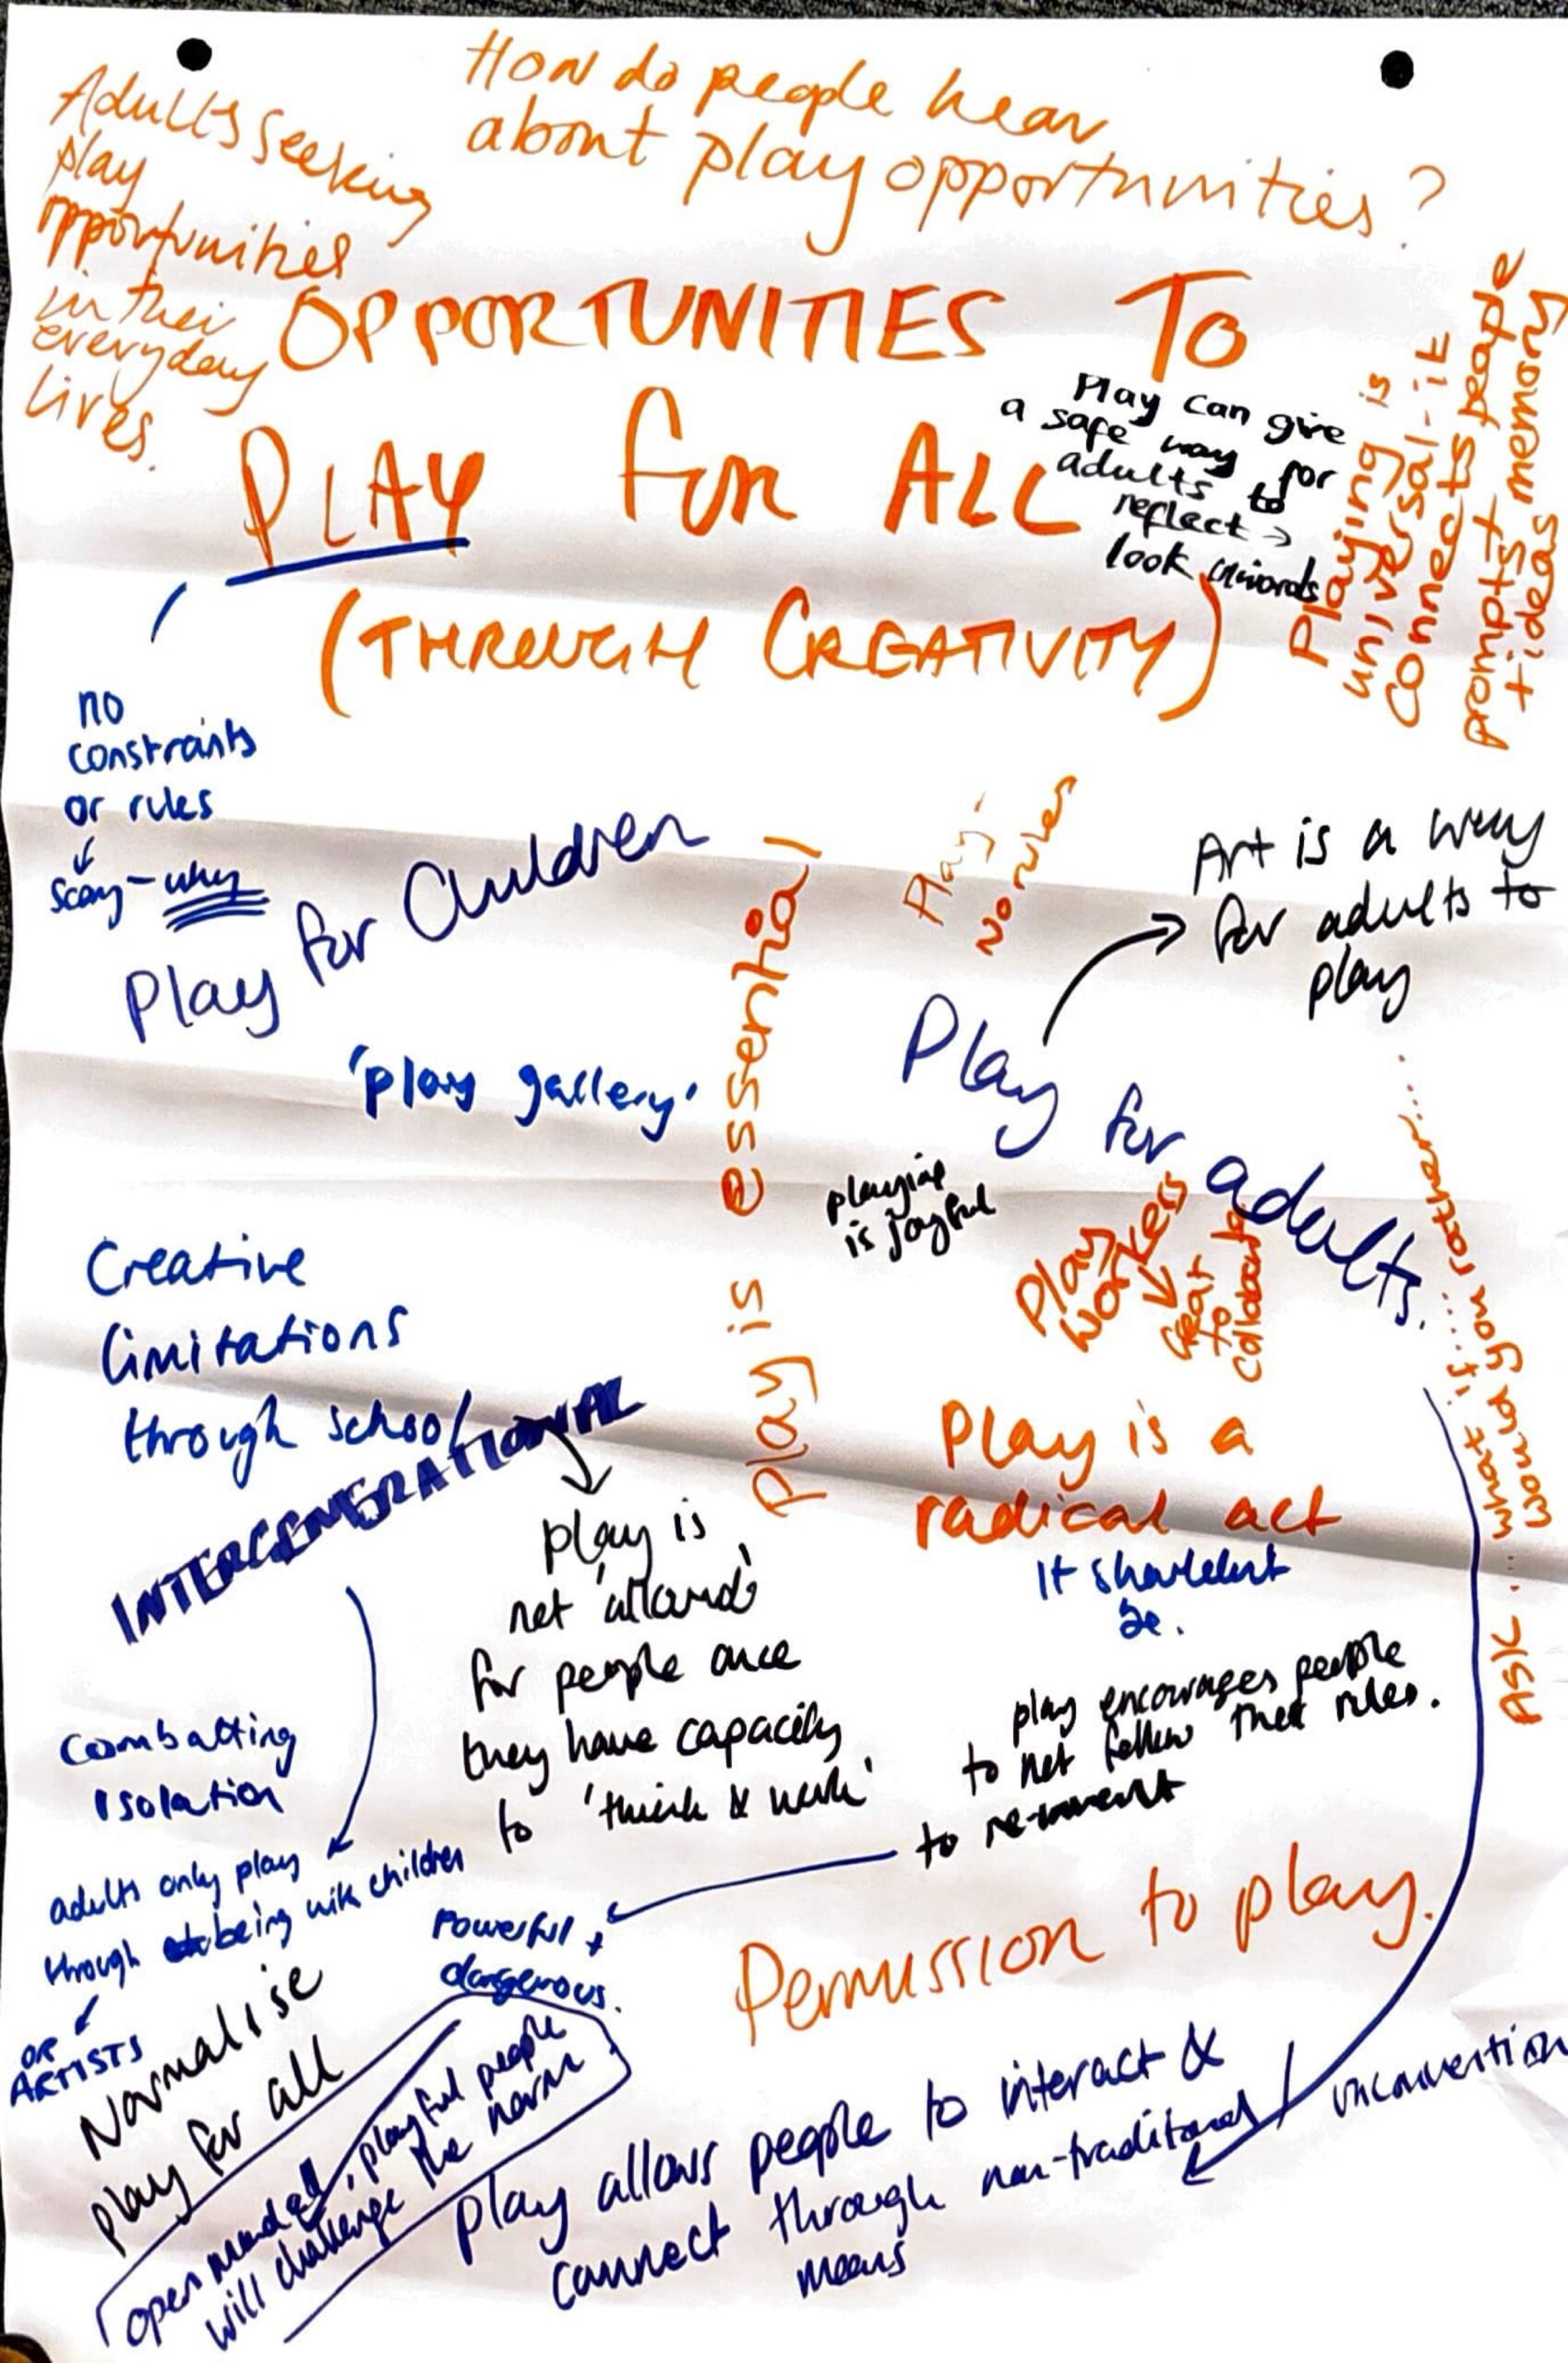 How do people hear
about play opportunities?
Adults seeking
play
opportunities
in their
everyday
lives.
OPPORTUNITIES TO
PLAY for ALL
(THROUGH CREATIVITY)
Play can give
a safe way for
adults to
reflect →
look inwards
Playing is
universal - it
connects people
prompts +
+ ideas memory
no
constraints
or rules
↓
scary - why
Play for Children
'play gallery'
Play is essential
Play -
no rules
Art is a way
for adults to
play
Play for adults.
playing
is joyful
Play
workers
fear
to
collaborate
ASK .... what if.....
would you rather....
Creative
limitations
through school
INTERGENERATIONAL
play is
not 'allowed'
for people once
they have capacity
to 'think & work'
Play is a
radical act
It shouldn't
be.
play encourages people
to not follow the rules.
to re-invent
Coombatting
Isolation
adults only play
through being with children
OR
ARTISTS
Powerful +
dangerous.
Permission to play.
Normalise
play for all
open minded, playful people
will challenge the norm
Play allows people to interact &
connect through non-traditional / unconvention
means